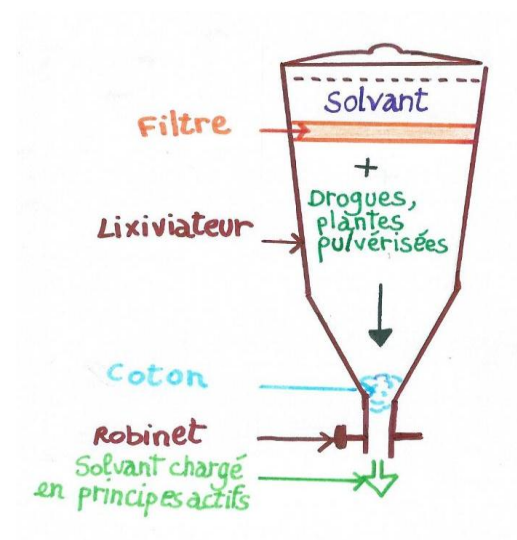 Solvant
Filtre
+
Drogues,
plantes
pulvérisées
Lixiviateur
Coton
Robinet
Solvant chargé
en principes actifs